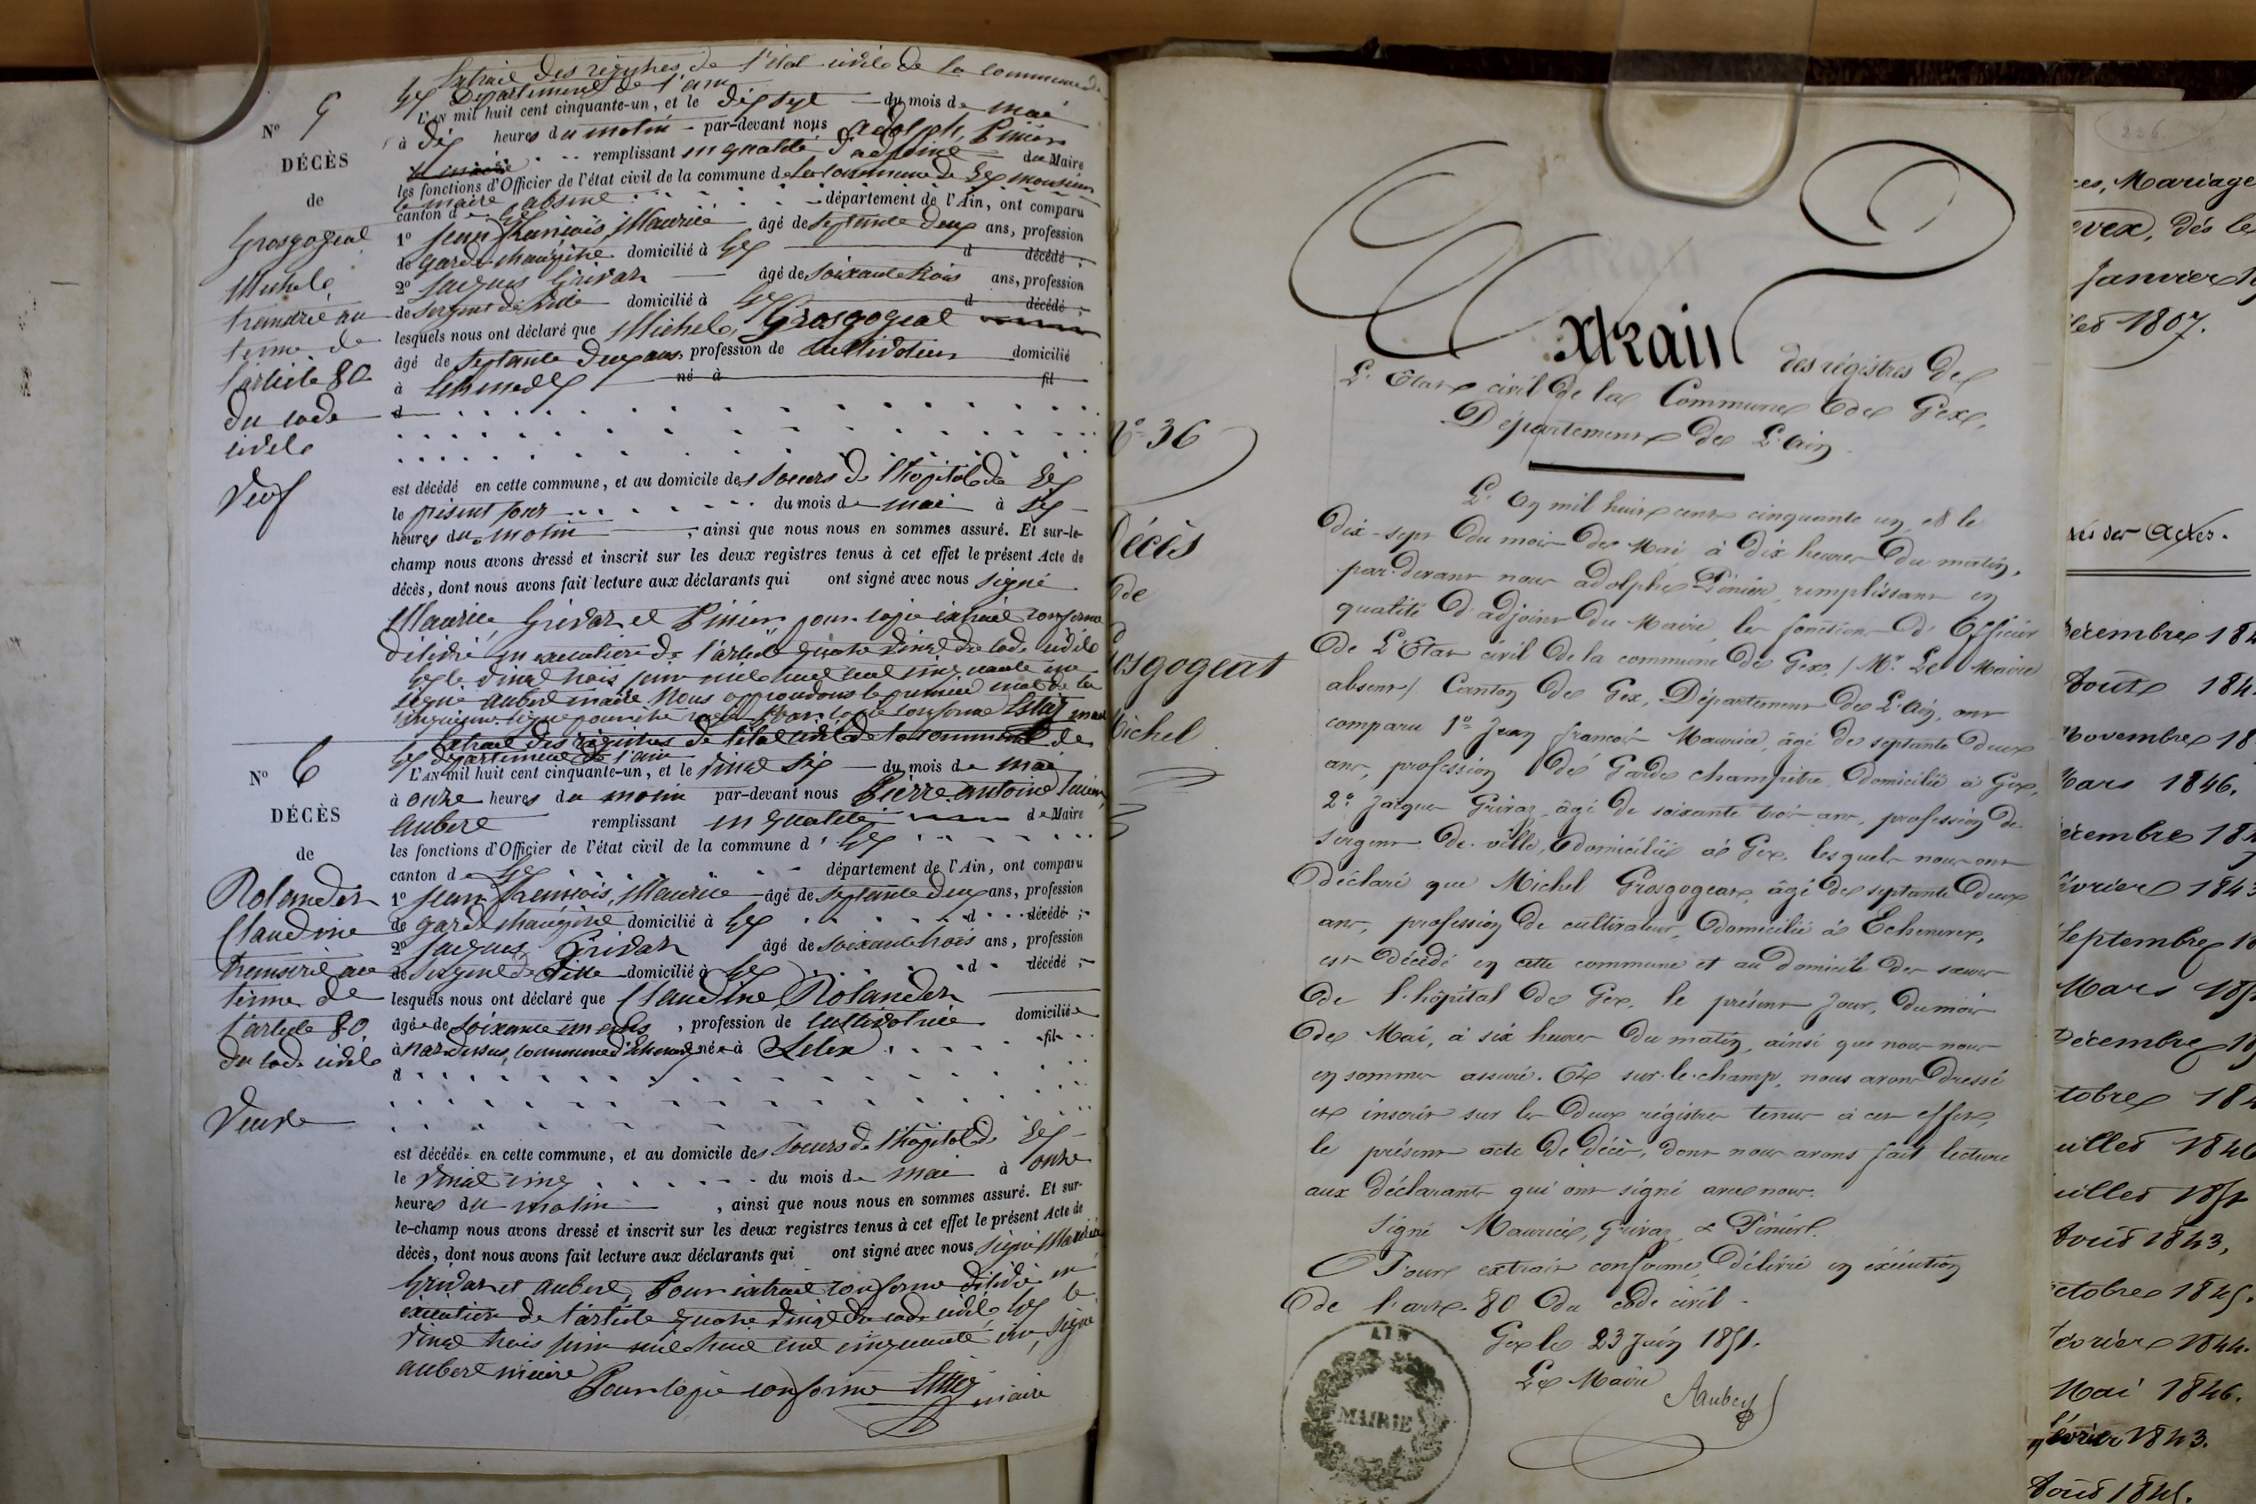 Extrait des registres de l'état civile de la commune de
Gex Département de l'ain
N° 5
L'AN mil huit cent cinquante-un, et le dix sept du mois de mai
à dix heures du matin par-devant nous adolphe Pinier
DÉCÈS
remplissant en qualité d'adjoint du Maire
les fonctions d'Officier de l'état civil de la commune de la commune de Gex monsieur
de
le maire absent
canton de Gex département de l'Ain, ont comparu
Grosgogeat
1° Jean François Maurice âgé de septante deux ans, profession
de garde champêtre domicilié à Gex d décédé ;
Michel
2° Jacques Grivaz âgé de soixante trois ans, profession
transcrit au
de sergent de ville domicilié à Gex d décédé ;
terme de
lesquels nous ont déclaré que Michel Grosgogeat
l'article 80
âgé de septante deux ans, profession de cultivateur domicilié
du code
à Echenevex né à fil
civile
d
Veuf
est décédé en cette commune, et au domicile des soeurs de l'hopital de Gex
le présent jour du mois de mai à six
heures du matin ; ainsi que nous nous en sommes assuré. Et sur-le-
champ nous avons dressé et inscrit sur les deux registres tenus à cet effet le présent Acte de
décès, dont nous avons fait lecture aux déclarants qui ont signé avec nous signé
Maurice, Grivaz et Pinier pour copie extrait conforme
délivré en execution de l'article quatre vingt du code civile
Gex le vingt trois juin mil huit cent cinquante un
signé aubert maire Nous approuvons le premier mot de la
cinquième ligne Pour copie conforme maire
Extrait des régistres de l'état civil de la commune de
Gex département de l'ain
N° 6
L'AN mil huit cent cinquante-un, et le vingt six du mois de mai
à onze heures du matin par-devant nous Pierre antoine
DÉCÈS
aubert remplissant en qualité de Maire
les fonctions d'Officier de l'état civil de la commune d Gex
de
canton de Gex département de l'Ain, ont comparu
Rolandez
1° Jean François Maurice âgé de septante deux ans, profession
Claudine
de garde champêtre domicilié à Gex d décédé ;
2° Jacques Grivaz âgé de soixante trois ans, profession
transcrit au
de sergent de ville domicilié à Gex d décédé ;
terme de
lesquels nous ont déclaré que Claudine Rolandez
l'article 80
âgée de soixante un ans, profession de cultivatrice domiciliée
du code civile
à naz dessus, commune d'Echenevex née à Lelex fil
d
Veuve
est décédée en cette commune, et au domicile des soeurs de l'hopital de Gex
le vingt cinq du mois de mai à onze
heures du matin , ainsi que nous nous en sommes assuré. Et sur-
le-champ nous avons dressé et inscrit sur les deux registres tenus à cet effet le présent Acte de
décès, dont nous avons fait lecture aux déclarants qui ont signé avec nous signé Maurice
Grivaz et aubert, Pour extrait conforme délivré en
exécution de l'article quatre vingt du code civile, Gex le
vingt trois juin mil huit cent cinquante un, signé
aubert maire
Pour copie conforme maire
N° 36
Décès
de
Grosgogeat
Michel
Extrait des régistres de
L'Etat civil de la Commune de Gex,
Département de L'Ain
L'An mil huit cent cinquante un et le
dix-sept du mois de Mai à dix heures du matin,
par-devant nous adolphe Pinier, remplissant en
qualité d'adjoint du Maire, les fonctions d'Officier
de L'Etat civil de la commune de Gex, (Mr. Le Maire
absent) Canton de Gex, Département de L'Ain, ont
comparu 1° Jean françois Maurice, âgé de septante deux
ans, profession de Garde champêtre domicilié à Gex,
2° Jacques Grivaz, âgé de soixante trois ans, profession de
sergent de ville, domicilié à Gex, lesquels nous ont
déclaré que Michel Grosgogeat, âgé de septante deux
ans, profession de cultivateur, domicilié à Echenevex,
est décédé en cette commune et au domicile des sœurs
de l'hôpital de Gex, le présent jour, du mois
de Mai, à six heures du matin, ainsi que nous nous
en sommes assuré. Et sur-le-champ, nous avons dressé
et inscrit sur les deux régistres tenus à cet effet,
le présent acte de décès, dont nous avons fait lecture
aux déclarants qui ont signé avec nous.
Signé Maurice, Grivaz, & Pinier.
Pour extrait conforme, délivré en exécution
de l'art. 80 du code civil.
Gex le 23 Juin 1851.
Le Maire
Aubert
AIN
MAIRIE
236
ces, Mariage
evex, dès le
Janvier
let 1807.
des Actes.
Décembre 184
Août 184
Novembre 18
Mars 1846.
Décembre 184
février 1843
Septembre 18
Mars 185
Décembre 18
ctobre 184
uillet 1846
uillet 1851
Août 1843,
ctobre 1845.
février 1844.
Mai 1846.
février 1843.
Août 1845.